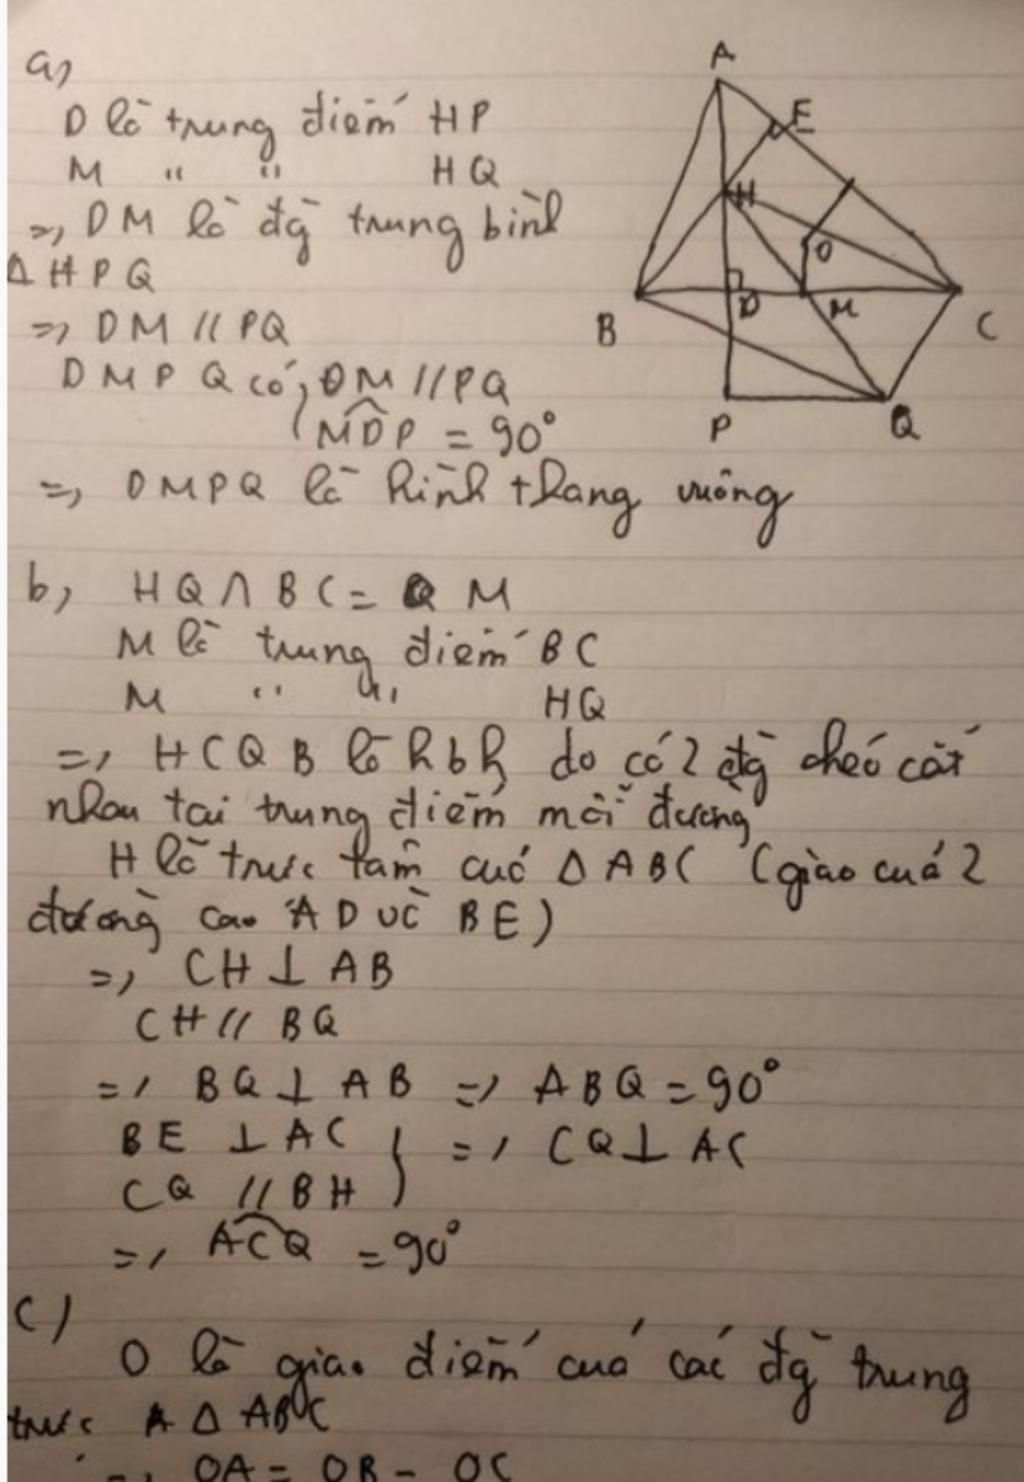 a)
D là trung điểm HP
M " " HQ
=> DM là đg trung bình
Δ HPQ
=> DM // PQ
DMPQ có, DM // PQ
MDP = 90°
=> DMPQ là hình thang vuông
b) HQ ∩ BC = M
M là trung điểm BC
M " " HQ
=> HCQB là hbh do có 2 đg chéo cắt
nhau tại trung điểm mỗi đường
H là trực tâm của Δ ABC (giao của 2
đường cao AD và BE)
=> CH ⊥ AB
CH // BQ
=> BQ ⊥ AB => ABQ = 90°
BE ⊥ AC } => CQ ⊥ AC
CQ // BH
=> ACQ = 90°
c)
O là giao điểm của các đg trung
trực Δ ABC
=> OA = OB = OC
A
E
H
O
B
D
M
C
P
Q